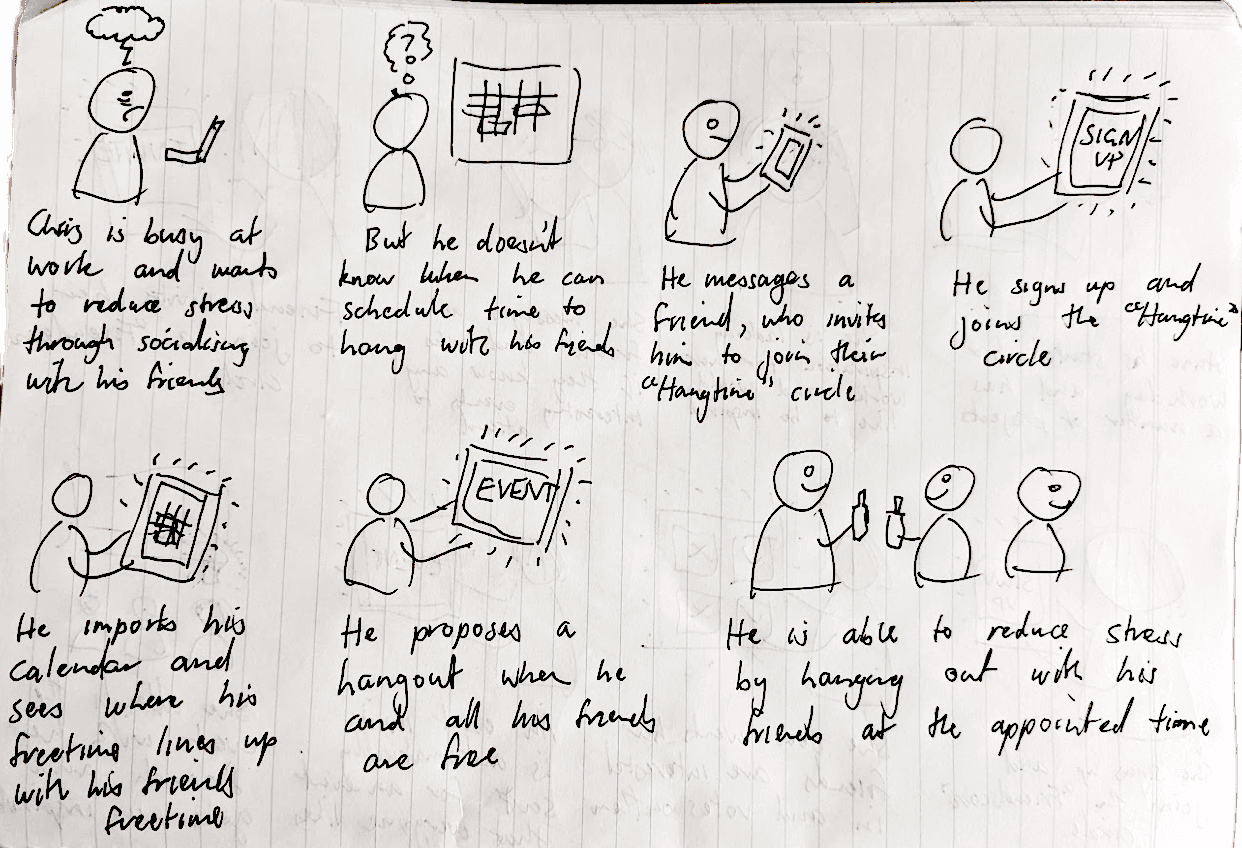 ?
SIGN
UP
Chris is busy at
work and wants
to reduce stress
through socialising
with his friends
But he doesn't
know when he can
schedule time to
hang with his friends
He messages a
friend, who invites
him to join their
"Hangtime" circle
He signs up and
joins the "Hangtime"
circle
EVENT
He imports his
calendar and
sees where his
freetime lines up
with his friends
freetime
He proposes a
hangout when he
and all his friends
are free
He is able to reduce stress
by hanging out with his
friends at the appointed time